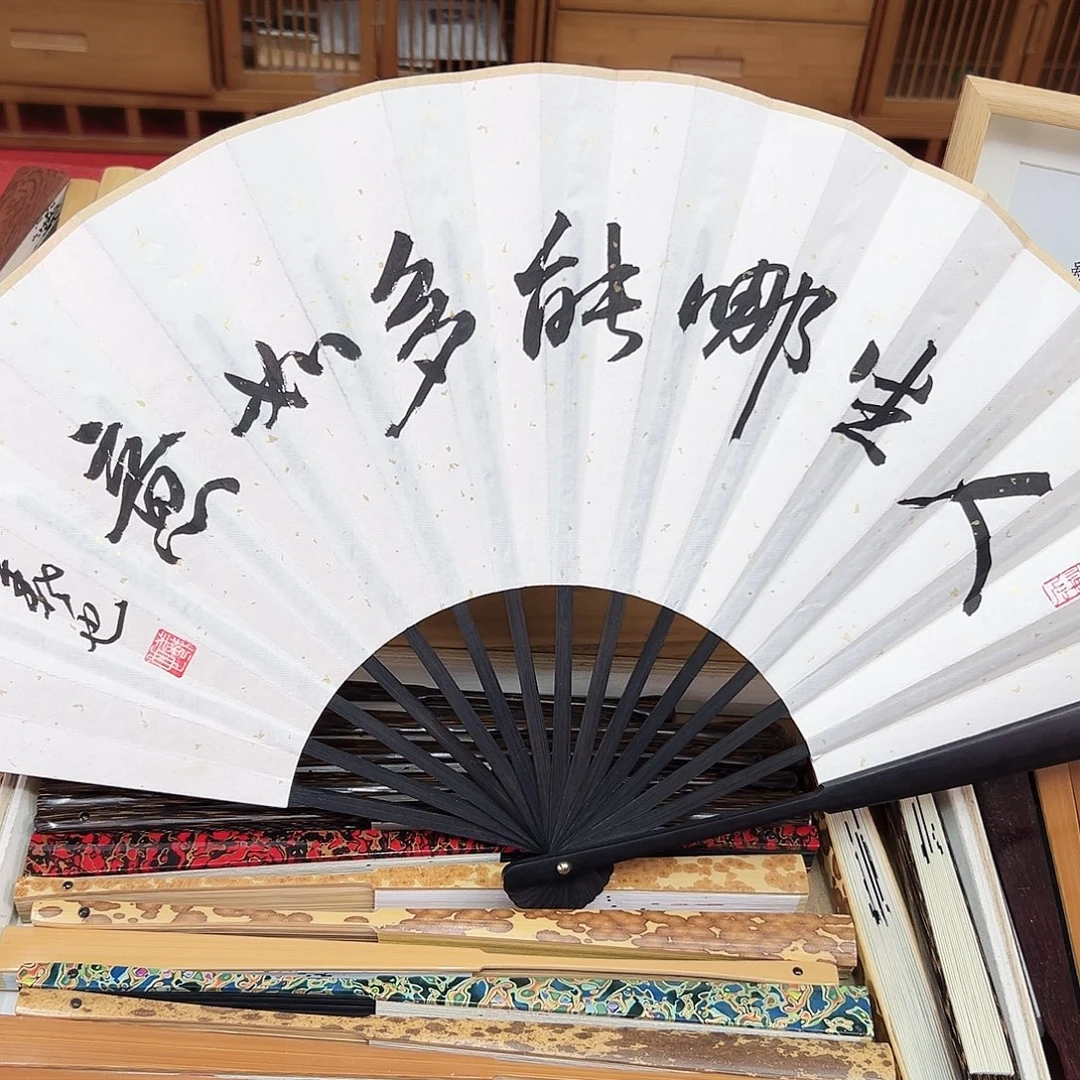 人生哪能多如意